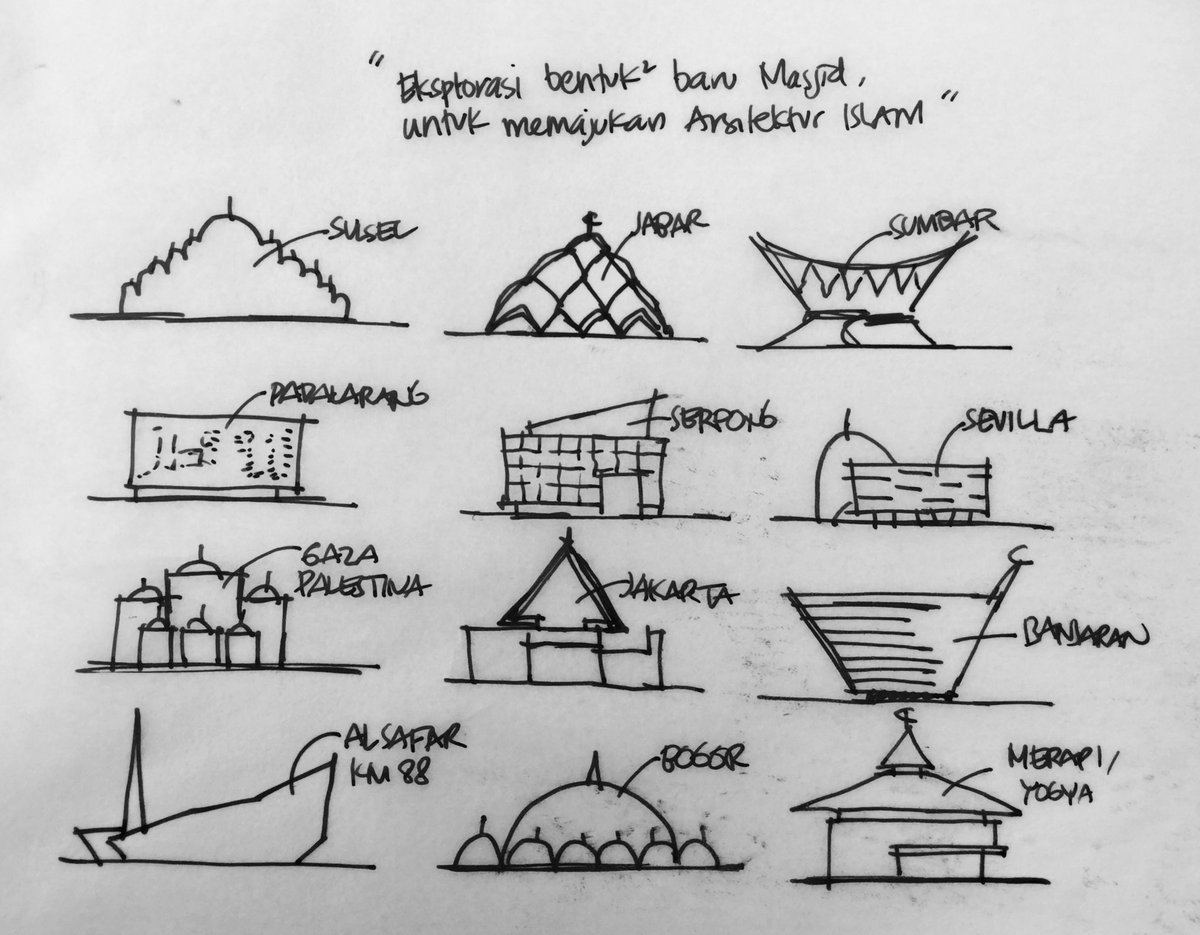 "Eksplorasi bentuk² baru Masjid,
untuk memajukan Arsitektur ISLAM"
SULSEL
JABAR
SUMBAR
PADALARANG
SERPONG
SEVILLA
GAZA
PALESTINA
JAKARTA
BANJARAN
ALSAFAR
KM 88
BOGOR
MERAPI/
YOGYA